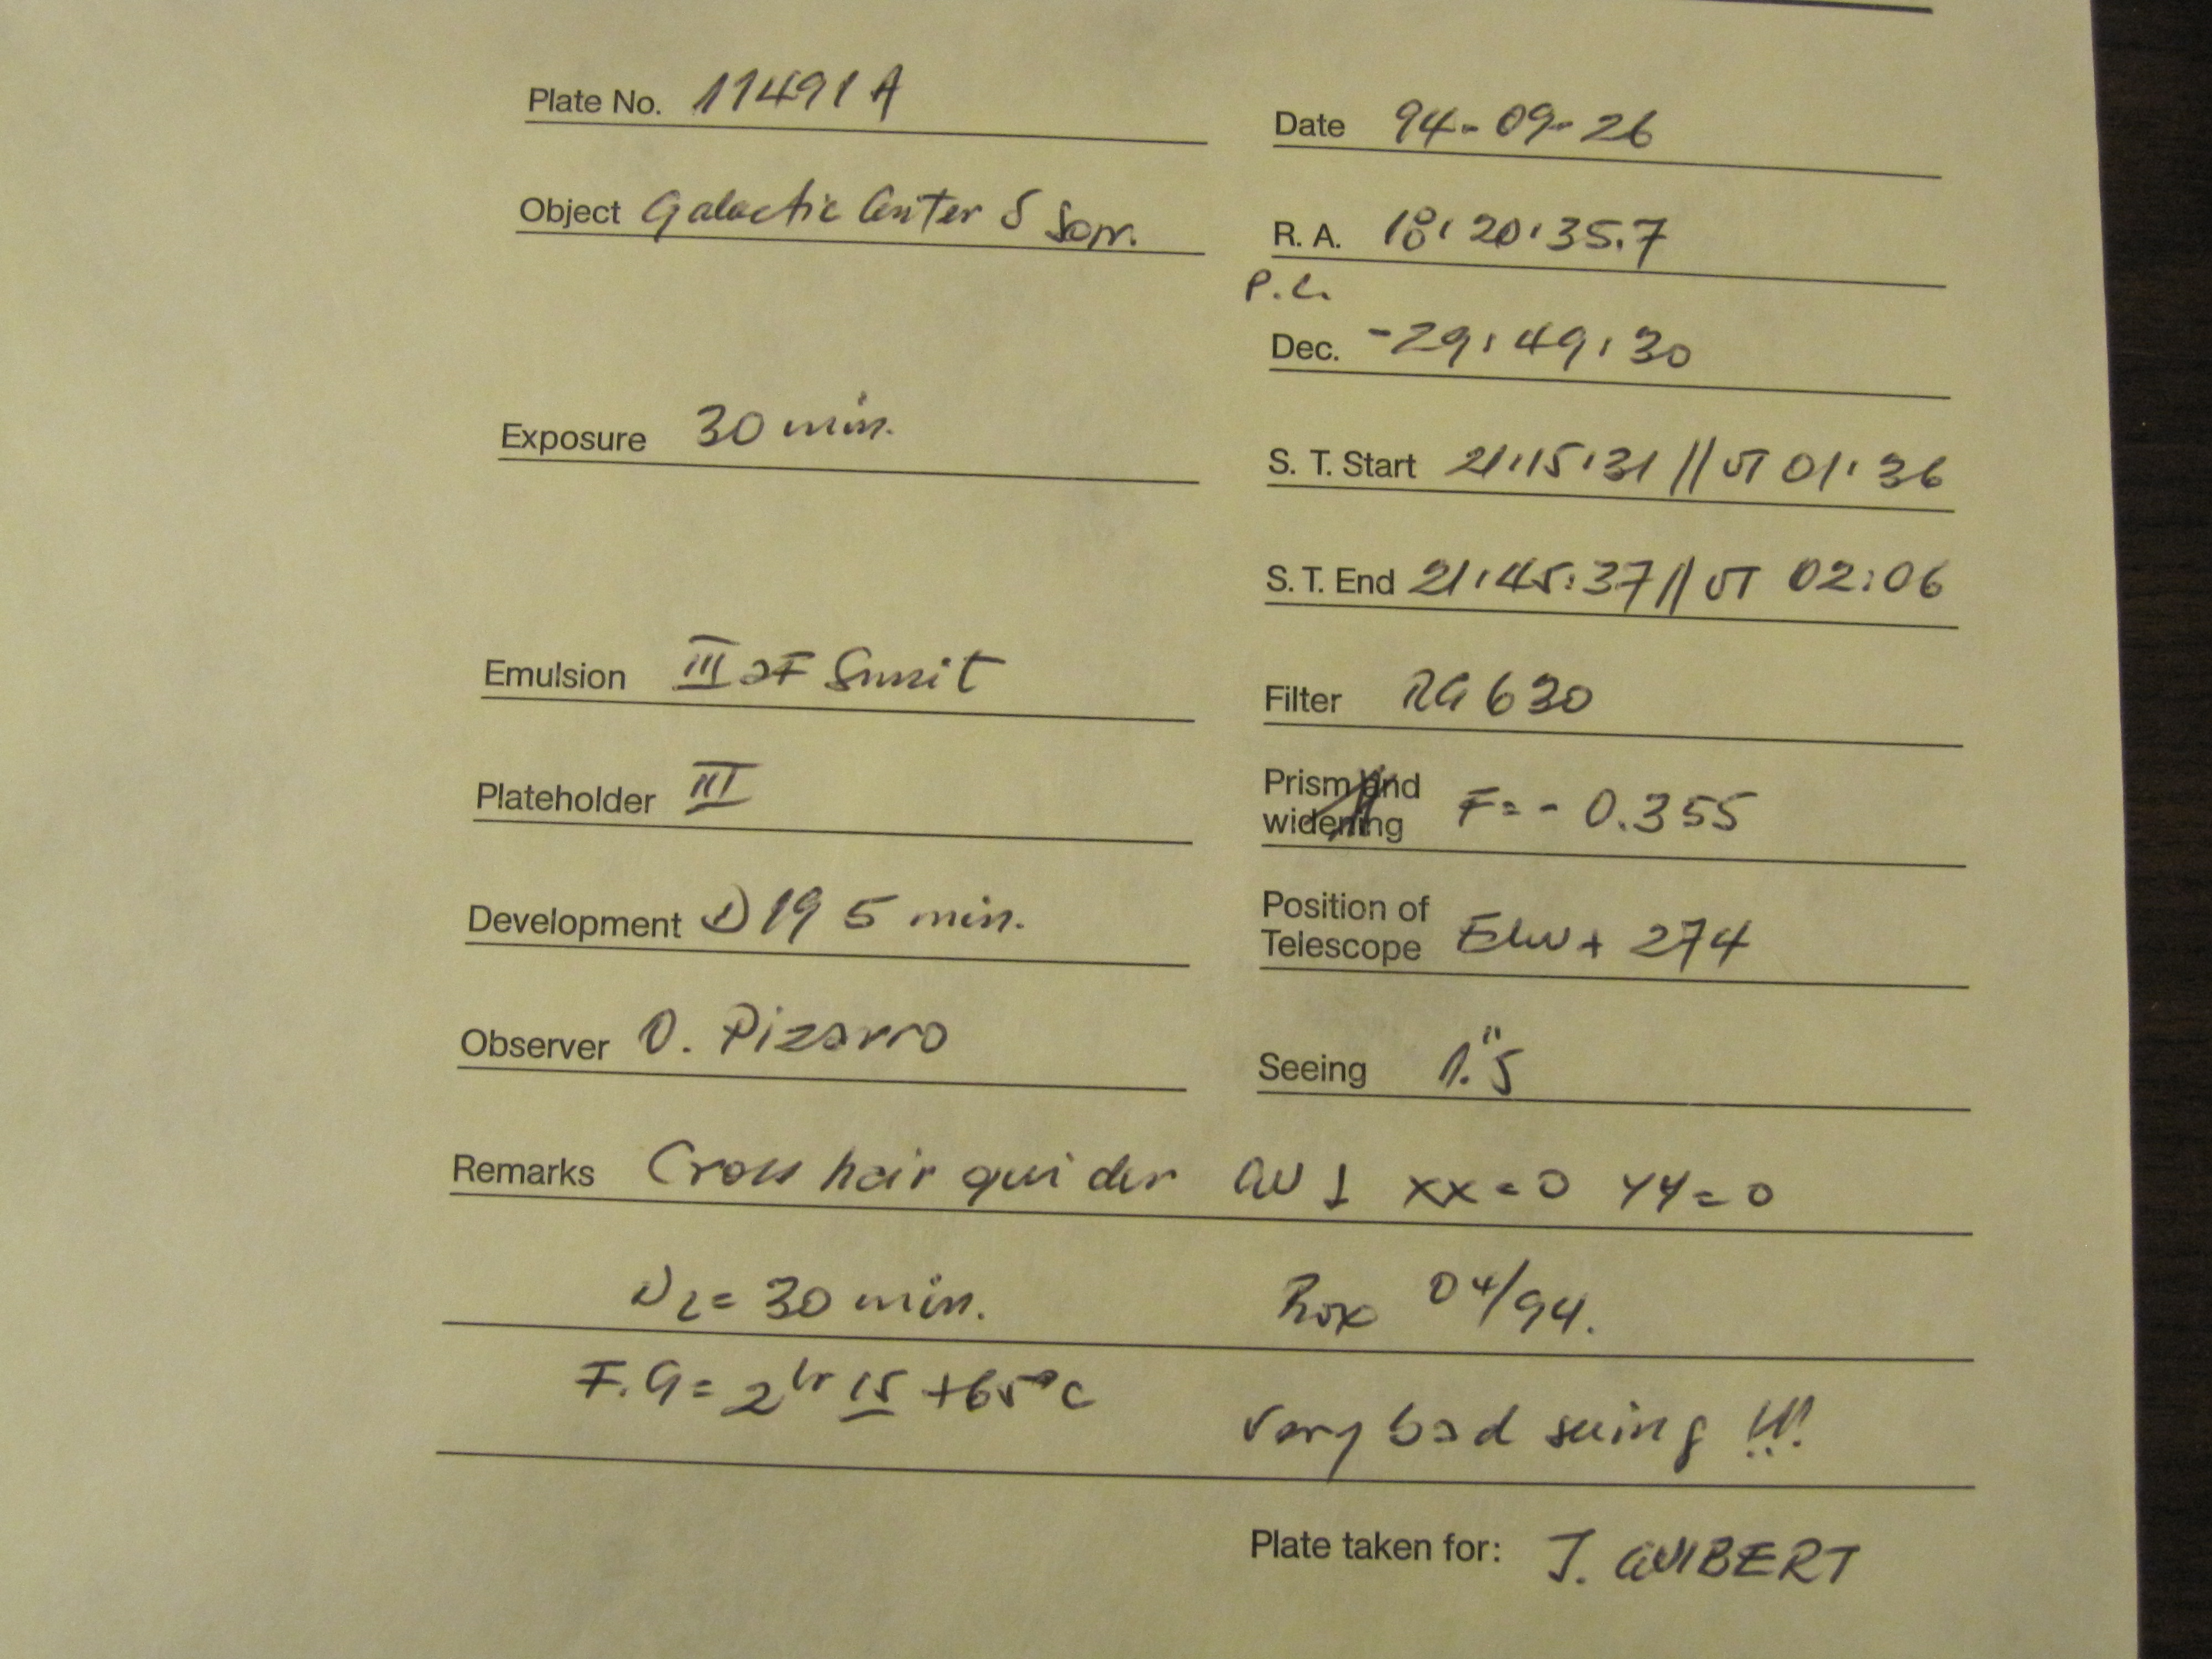 Plate No. 11491 A
Date 94-09-26
Object Galactic Center S
R. A. 18:20:35.7
P.C.
Dec. -29:49:30
Exposure 30 min.
S. T. Start 21:15:31 // UT 01:36
S. T. End 21:45:37 // UT 02:06
Emulsion III aF
Filter RG 630
Plateholder III
Prism and widening F= - 0.355
Development D19 5 min.
Position of Telescope 274
Observer O. Pizarro
Seeing 1."5
Remarks Cross hair guider xx=0 YY=0
N2= 30 min. 04/94.
F.G= 2hr 15 +65°C
very bad seeing !!!
Plate taken for: J. GUIBERT